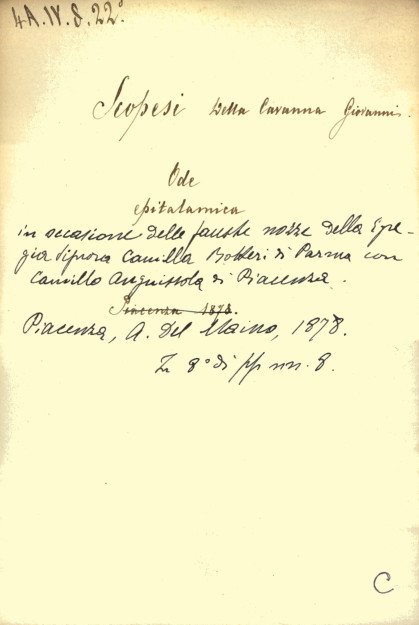 4A.IV.8.22°
Scopesi Della Cavanna Giovanni.
Ode
epitalamica
in occasione delle fauste nozze della Egre-
gia Signora Camilla Botteri di Parma con
Camillo Anguissola di Piacenza.
Piacenza 1878.
Piacenza, A. Del Maino, 1878.
In 8° di pp nn. 8.
C